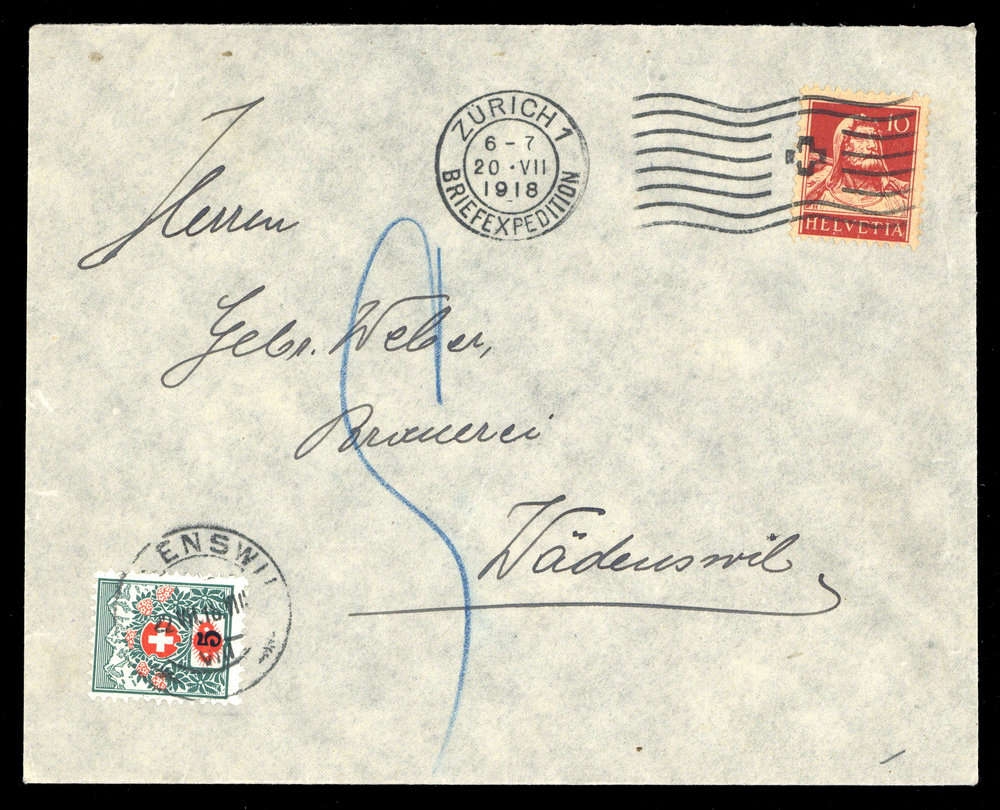 ZÜRICH 1
6-7
20·VII
1918
BRIEFEXPEDITION
10
HELVETIA
Herren
Gebr. Weber,
Brauerei
Wädenswil
5
ENSWIL
5